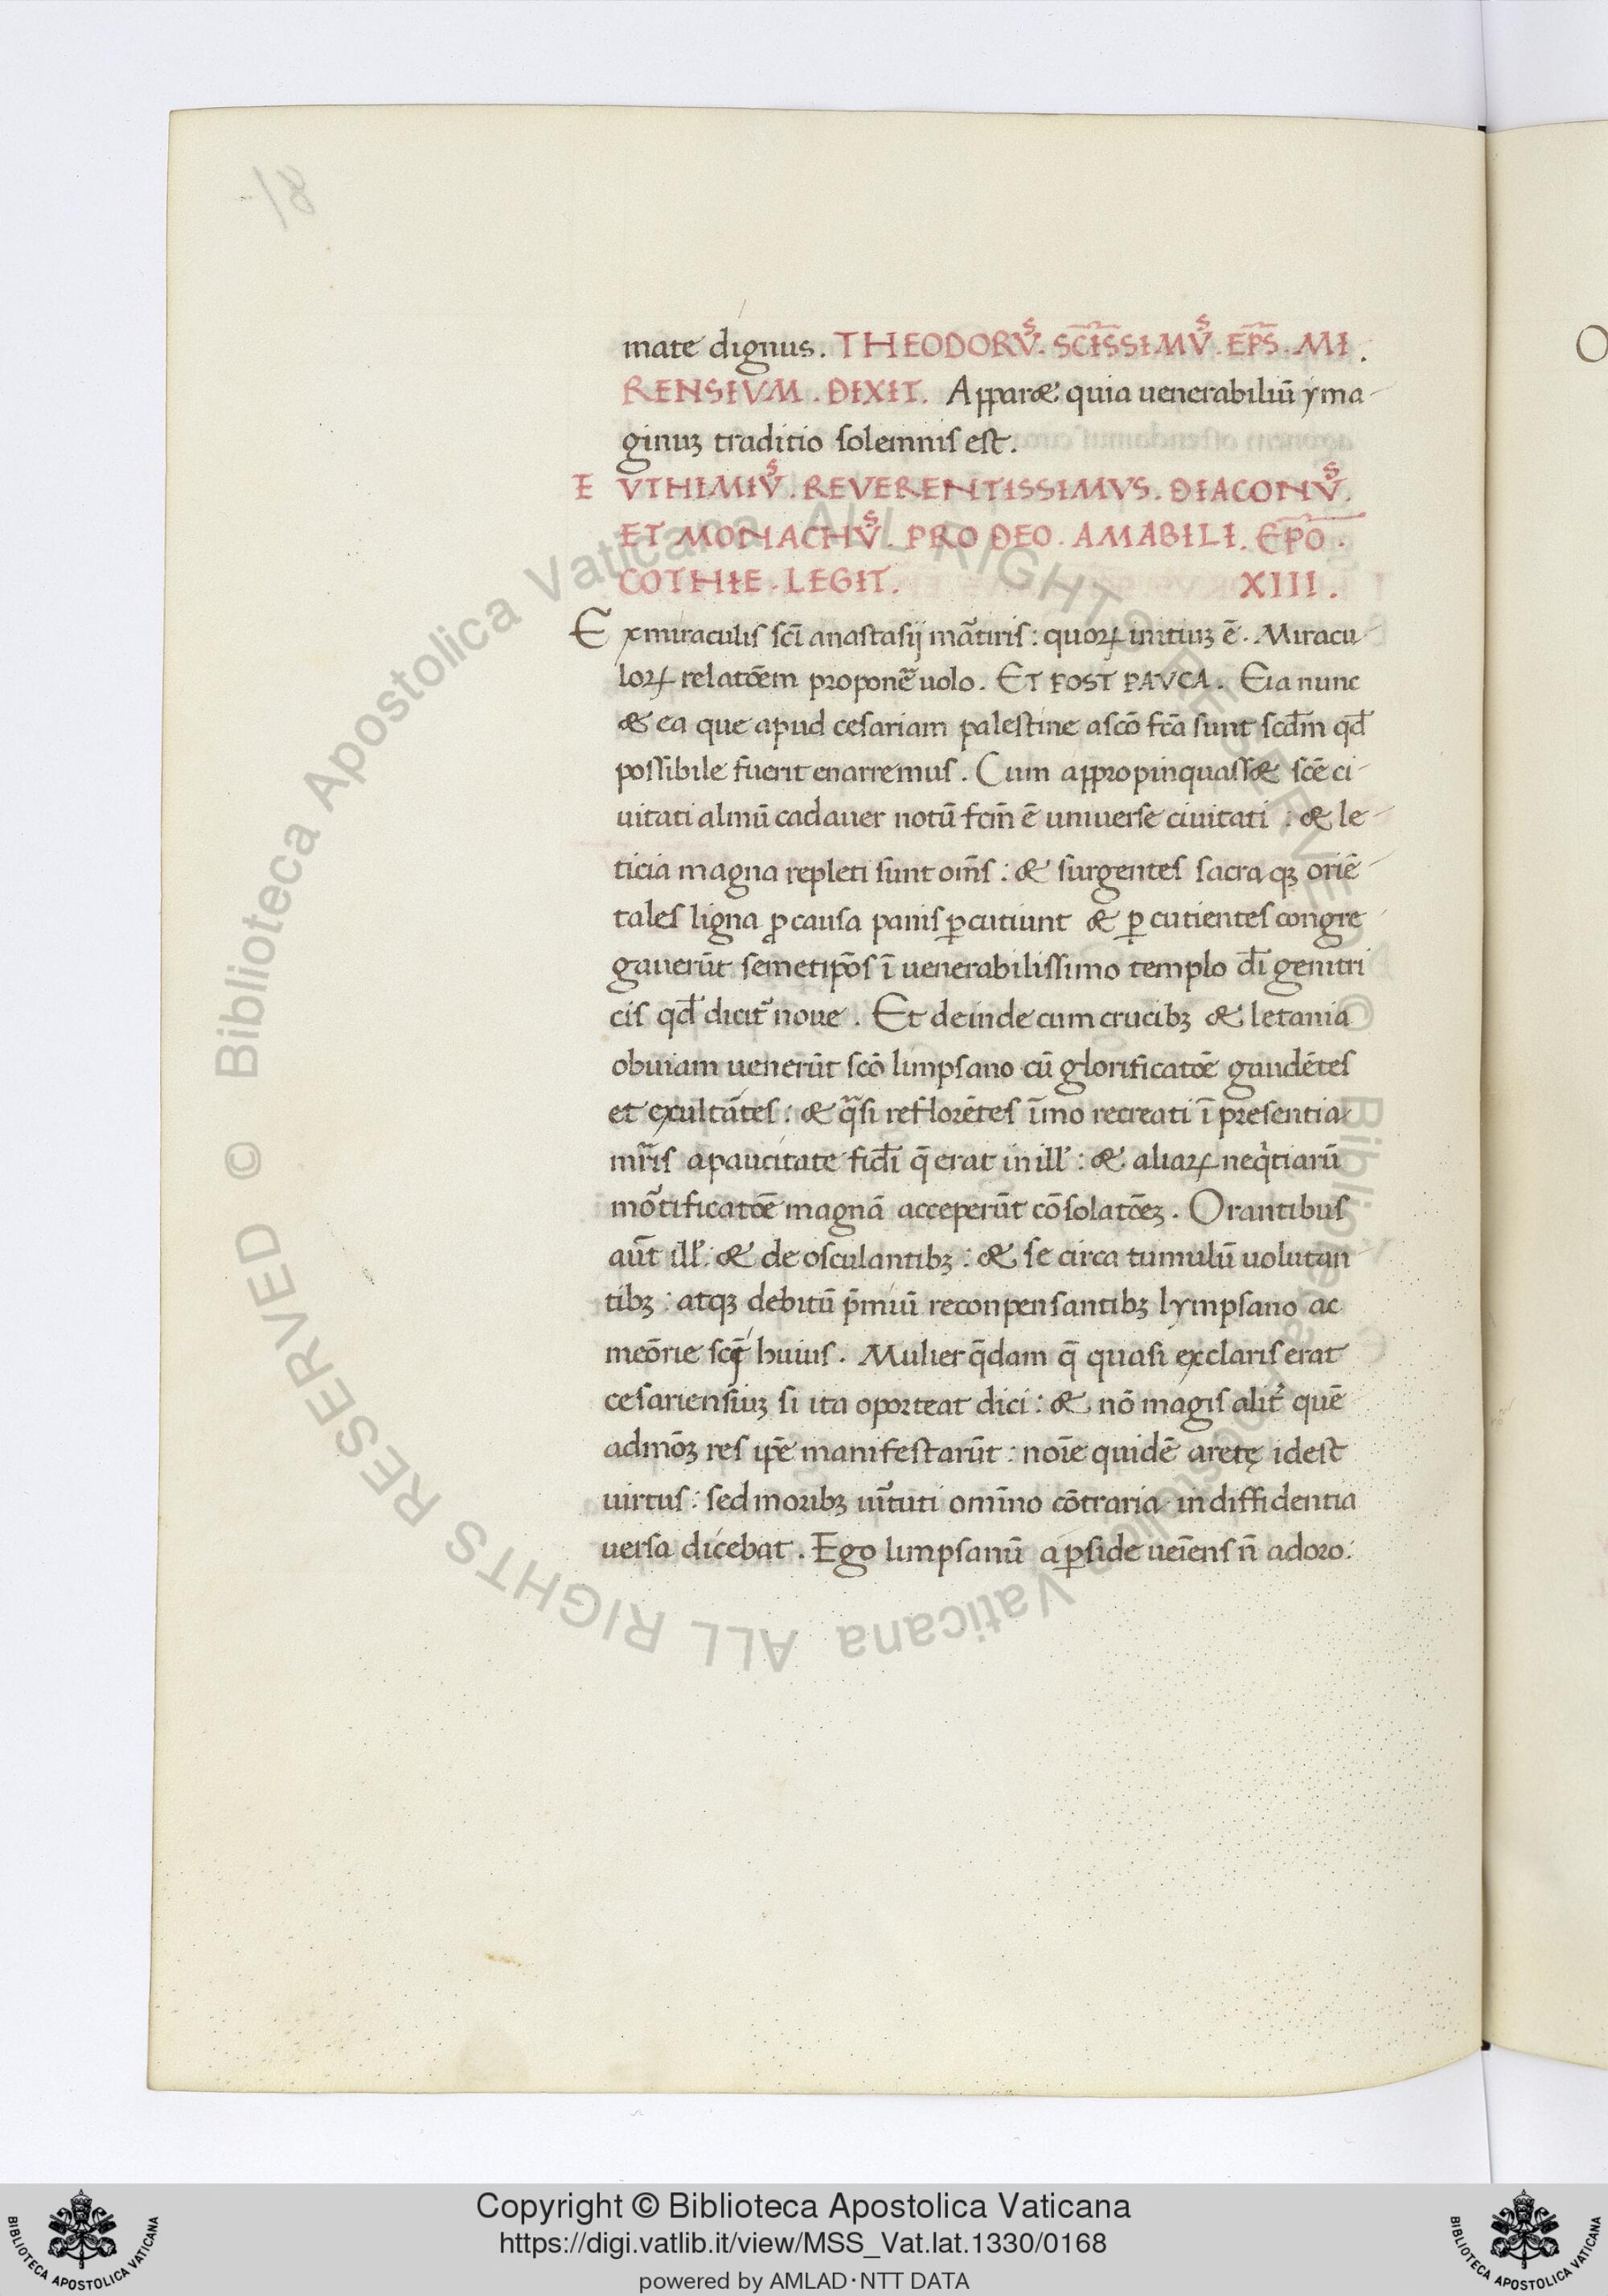 18
mate dignus. THEODORV̄S. SC̄ISSIMV̄S. EP̄S. MI.
RENSIVM. DIXIT. Apparæ quia uenerabiliū yma-
ginuȝ traditio solemnis est.
EVTHIMIV̄S. REVERENTISSIMVS. DIACONV̄S.
ET MONACHV̄S. PRO DEO. AMABILI. EPŌ.
COTHIE. LEGIT. XIII.
Ex miraculis sc̄i anastasij mār̄tiris: quoꝝ initiuȝ ē. Miracu-
loꝝ relatōem proponēr̄ uolo. ET POST PAVCA. Eia nunc
& ea que apud cesariam palestine a sc̄o fc̄a sunt scd̄m qd̄
possibile fuerit enarremus. Cum appropinquassæ sc̄e ci-
uitati almū cadauer notū fcm̄ ē uniuerse ciuitati: & le-
ticia magna repleti sunt om̄s: & surgentes sacra qȝ oriē-
tales ligna ꝓ causa panis ꝑcutiunt & ꝑcutientes congre-
gauerūt semetip̄os ī uenerabilissimo templo dī genitri
cis qd̄ dicit̄ noue. Et deinde cum crucibȝ & letania
obuiam uenerūt sc̄o limpsano cū glorificatōe gaudētes
et exultātes: & qāsi reflorētes īmo recreati ī presentia
mr̄is a paucitate fidī q̄ erat in ill': & aliaꝝ neqⁱtiarū
mōr̄tificatōe magnā acceperūt cōsolatōeȝ. Orantibus
aūt ill': & deosculantibȝ: & se circa tumulū uolutan
tibȝ: atqȝ debitū p̄miū reconpensantibȝ lympsano ac
meōrie sc̄ę huius. Mulier q̄dam q̄ quasi ex claris erat
cesariensiuȝ si ita oporteat dici: & nō magis alit̄ quē
admōȝ res ip̄e manifestarūt: noīe quidē aretę idest
uirtus: sed moribȝ uir̄tuti omīno cōtraria in diffidentia
uersa dicebat. Ego limpsanū a ꝑside ueīens n̄ adoro:
O
© Biblioteca Apostolica Vaticana ALL RIGHTS RESERVED © Biblioteca Apostolica Vaticana ALL RIGHTS RESERVED
BIBLIOTECA APOSTOLICA VATICANA
Copyright © Biblioteca Apostolica Vaticana
https://digi.vatlib.it/view/MSS_Vat.lat.1330/0168
powered by AMLAD·NTT DATA
BIBLIOTECA APOSTOLICA VATICANA